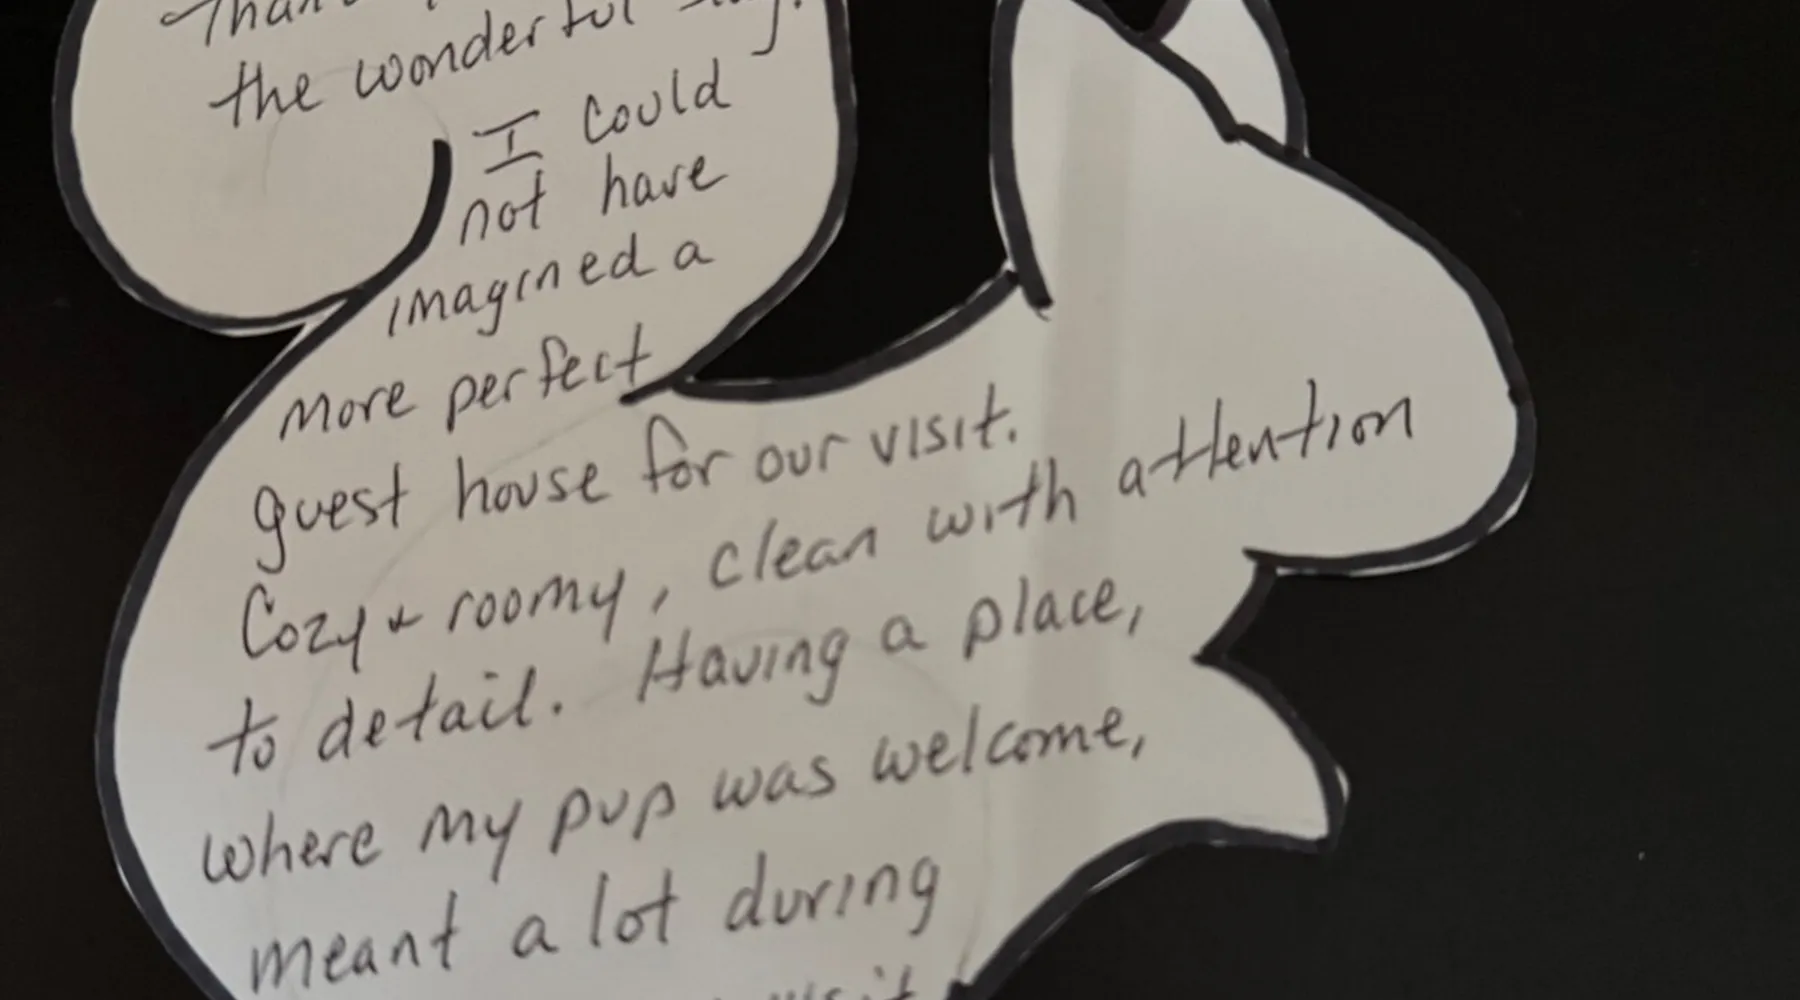 the wonderful
I could
not have
imagined a
more perfect
guest house for our visit.
Cozy + roomy, clean with attention
to detail. Having a place,
where my pup was welcome,
meant a lot during